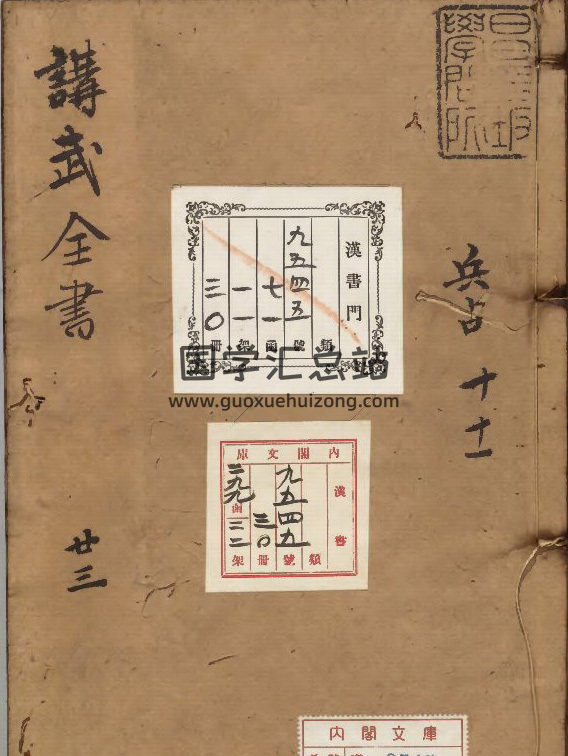 講武全書
廿三
兵占 十 十一
昌平坂
學問所
漢書門
類
九五四五號
七一函
一一架
三〇冊
国学汇总站
www.guoxuehuizong.com
內閣文庫
漢書
類
九五四九號
三〇冊
二九九函
三二架
內閣文庫